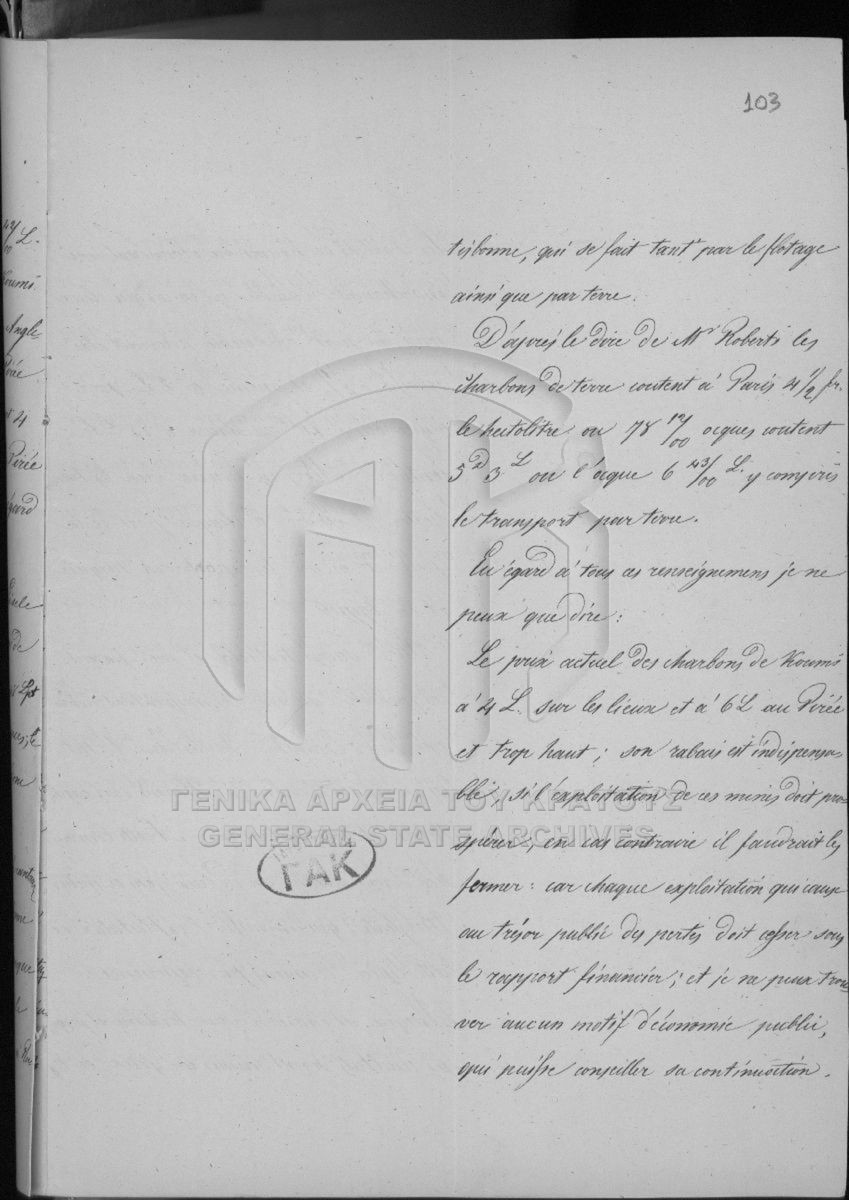 103
tisbonne, qui se fait tant par le flotage
ainsi que par terre.
D'après le dire de Mr Roberts les
charbons de terre coutent à Paris 4 1/2 fr.
le hectolitre ou 78 12/00 ocques coutent
5 D 3 L ou l'ocque 6 43/00 L. y compris
le transport par terre.
Eu égard à tous ces renseignemens je ne
peux que dire:
Le prix actuel des charbons de Koumi
à 4 L. sur les lieux et à 6 L au Pirée
et trop haut; son rabais est indispensa-
ble, si l'exploitation de ces mines doit pro-
spérer; en cas contraire il faudrait les
fermer: car chaque exploitation qui cause
au trésor public des pertes doit cesser sous
le rapport financier; et je ne peux trou-
ver aucun motif d'économie public,
qui puisse conseiller sa continuation.
ΓΕΝΙΚΑ ΑΡΧΕΙΑ ΤΟΥ ΚΡΑΤΟΥΣ
GENERAL STATE ARCHIVES
ΓΑΚ
42/00 L.
Koumi
Angle-
Pirée
et 4
Pirée
égard
de